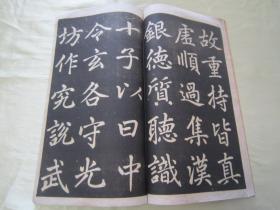 故重持皆真
虚順過集漢
銀德質聽識
十子以日中
令玄各守光
坊作究說武